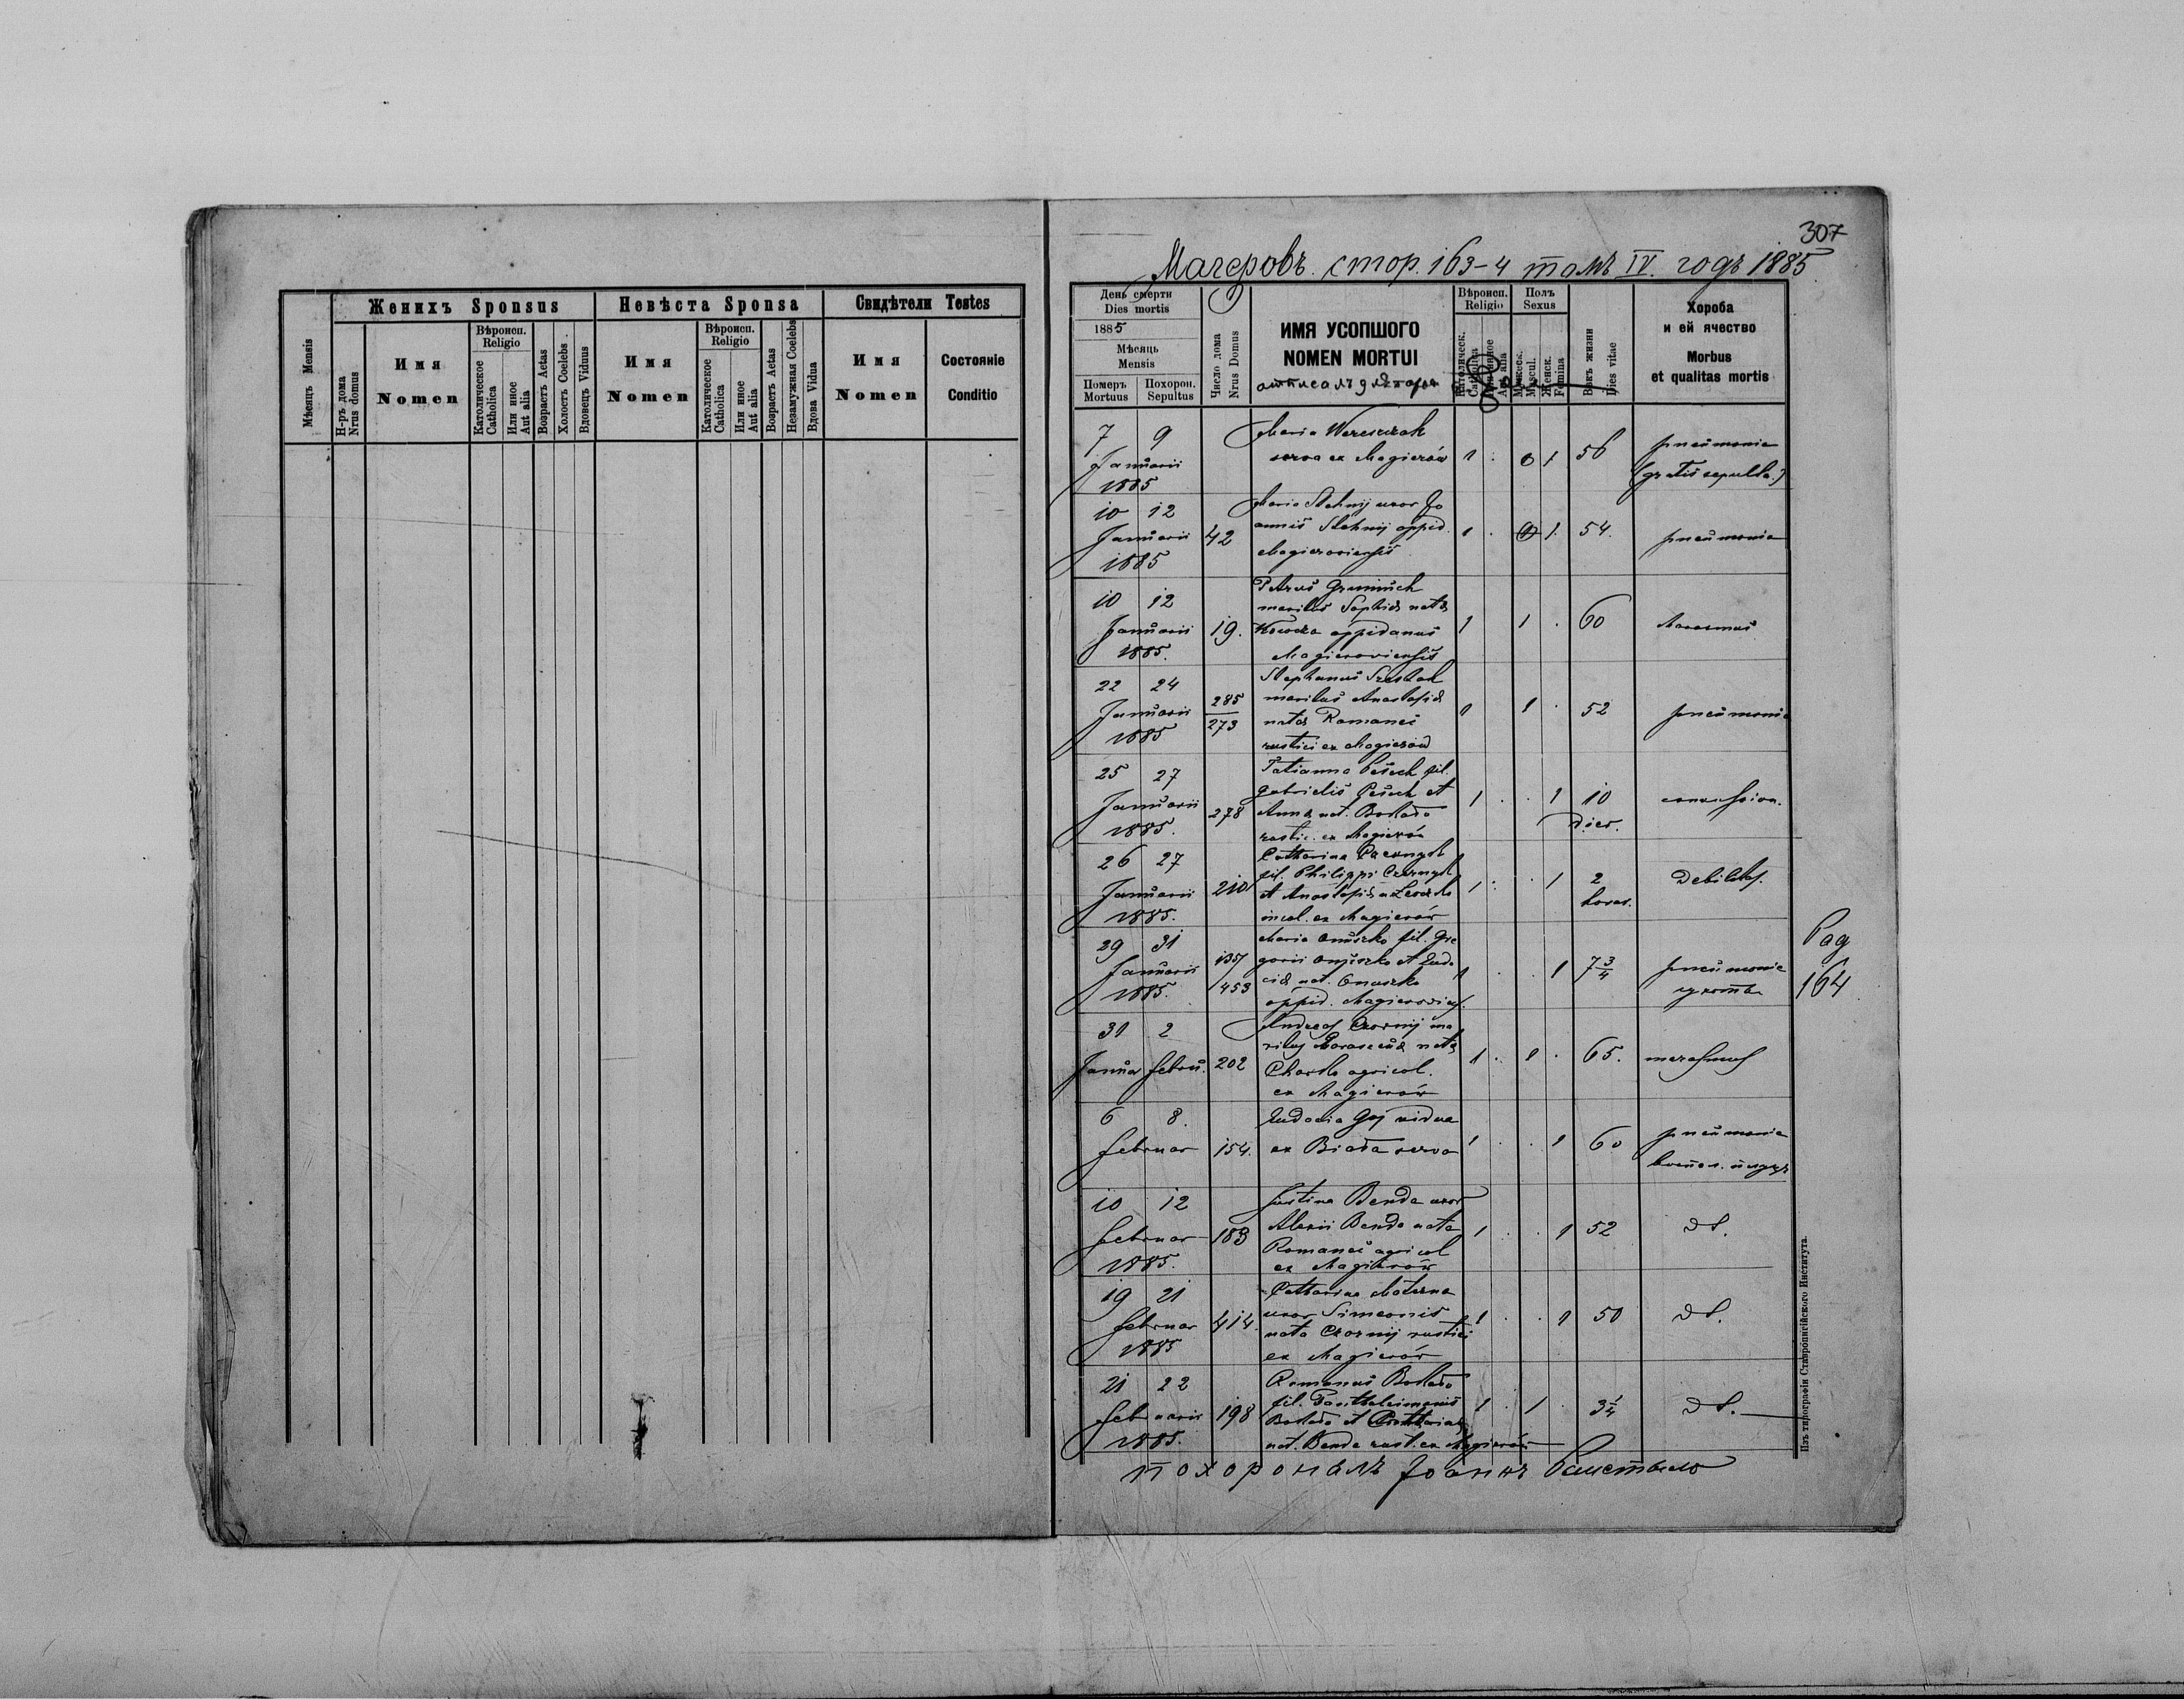 Женихъ Sponsus
Невѣста Sponsa
Свидѣтели Testes
Мѣсяць Mensis
Н-ръ дома
Nrus domus
Имя
Nomen
Вѣроисп.
Religio
Католическое
Catholica
Или иное
Aut alia
Возрастъ Aetas
Холостъ Coelebs
Вдовецъ Viduus
Имя
Nomen
Вѣроисп.
Religio
Католическое
Catholica
Или иное
Aut alia
Возрастъ Aetas
Незамужная Coelebs
Вдова Vidua
Имя
Nomen
Состоянiе
Conditio
307
Магеровъ. стор. 163-4 томъ IV. годъ 1885
День смерти
Dies mortis
1885
Мѣсяць
Mensis
Померъ
Mortuus
Похорон.
Sepultus
Число дома
Nrus Domus
ИМЯ УСОПШОГО
NOMEN MORTUI
Вѣроисп.
Religio
Католическ.
Catholica
Или иное
Aut alia
Полъ
Sexus
Мужеск.
Mascul.
Женск.
Femina
Вѣкъ жизни
Dies vitae
Хороба
и ей ячество
Morbus
et qualitas mortis
7 9
Januarii
1885
Maria Wereszczak
serva ex Magierów
1 . 0 1 56
pneumonia
(gratis sepulta.)
10 12
Januarii
1885
42
Maria Stehnij uxor Jo
annis Stehnij oppid.
Magieroviensis
1 . 1. 54.
pneumonia
10 12
Januarii
1885.
19.
Petrus
maritus Sophiæ natæ
oppidanus
Magieroviensis
1 1 . 60
Marasmus
22 24
Januarii
1885
285
273
Stephanus
maritus Anastasiæ
natæ Romaneć
rustici ex Magierów
1 1 . 52
pneumonia
25 27
Januarii
1885.
278
Tatianna Pesuch fil.
Gabrielis Pesuch et
Annæ nat.
rustic. ex Magierów
1 . . 1 10
dier.
26 27
Januarii
1885.
210
Catharina
fil. Philippi
et Anastasiæ
incol. ex Magierów
1 . . 1 2
horar.
Debilitas.
29 31
Januarii
1885.
137
453
Maria Onuszko fil. Gre
gorii Onuszko et Eudo
ciæ nat. Onuszko
oppid. Magierovien.
1 . . 1 7 3/4
pneumonia
Pag
164
31 2
Januar Febru.
202
Andreas Czornij ma
ritus natæ
agricol.
ex Magierów
1 . 1 . 65.
marasmus
6 8.
Februar
154.
Eudocia Goj vidua
ex serva
1 . . 1 60
pneumonia
10 12
Februar
1885.
183
Justina Benda uxor
Alexii Benda nata
Romaneć agricol
ex Magierów
1 . . 1 52
dt.
19 21
Februar
1885
414.
Catharina Materna
uxor Simeonis
nata Czornij rustici
ex Magierów
1 . . 1 50
dt.
21 22
Februarii
1885.
198
Romanus
fil. Panthaleimonis
et Catharinæ
nat. Benda rust. ex Magierów
1 . 1 . 3 1/4
dt.
похоронилъ
Изъ типографiи Ставропигiйского Института.